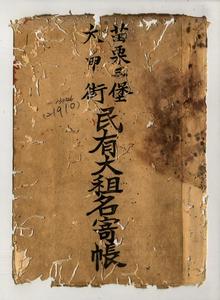 苗栗三堡
大甲街
民有大租名寄帳